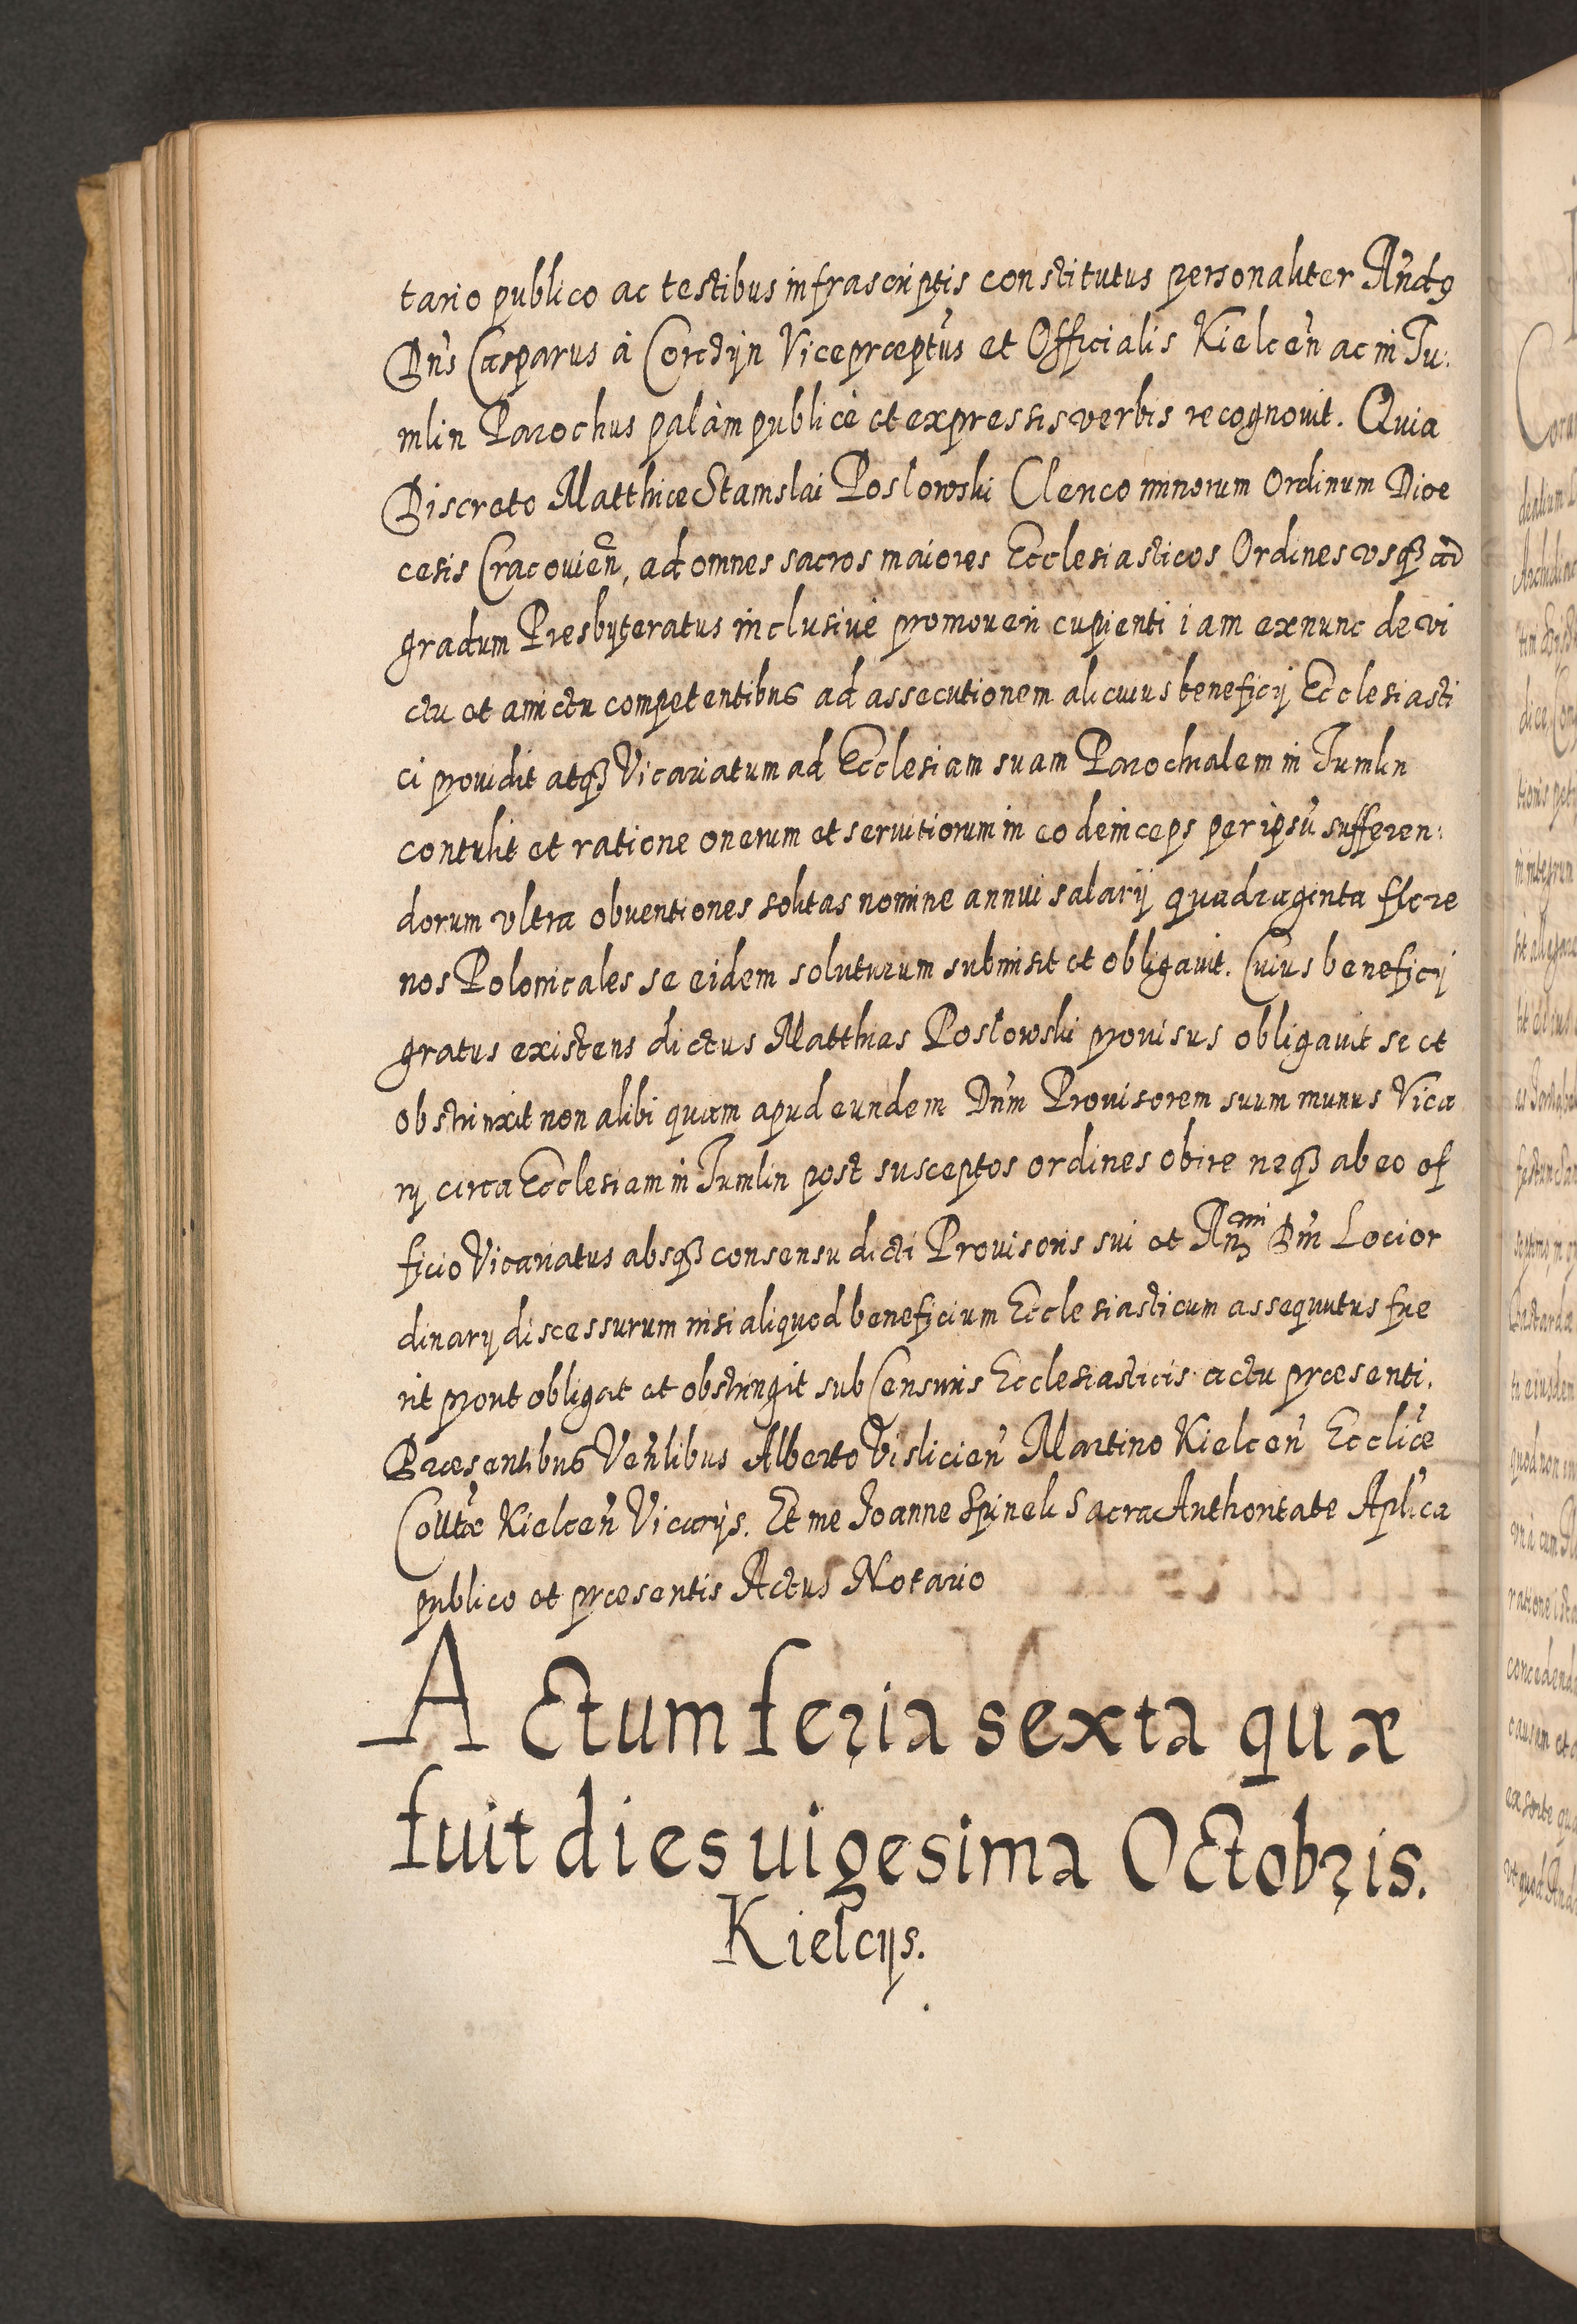 tario publico ac testibus infrascriptis constitutus personaliter Andꝰ
Dn̄s Casparus à Cordijn Vicepræptūs et Officialis Kielcen̄ ac in Tu:
mlin Parochus palàm publicè et expressis verbis recognouit. Quia
Discreto Matthiæ Stanislai Posłowski Clerico minorum Ordinum Dioe
cesis Cracouien̄, ad omnes sacros maiores Ecclesiasticos Ordines vsqꝫ ad
gradum Presbyteratus inclusiuè promoueri cupienti iam exnunc de vi
ctu et amictu competentibus ad assecutionem alicuius beneficij Ecclesiasti
ci prouidit atqꝫ Vicariatum ad Ecclesiam suam Parochialem in Tumlin
contulit et ratione onerum et seruitiorum in eo deinceps per ipsū sufferen:
dorum vltra obuentiones solitas nomine annui salarij quadraginta flore
nos Polonicales se eidem soluturum submisit et obligauit. Cuius beneficij
gratus existens dictus Matthias Posłowski prouisus obligauit se et
obstrinxit non alibi quam apud eundem Dn̄m Prouisorem suum munus Vica
rij circa Ecclesiam in Tumlin post susceptos ordines obire neqꝫ ab eo of
ficio Vicariatus absqꝫ consensu dicti Prouisoris sui et Anꝫ Dn̄i Loci or
dinarij discessurum nisi aliquod beneficium Ecclesiasticum assequutus fue
rit prout obligat et obstringit sub Censuris Ecclesiasticis actu præsenti.
Præsentibus Ven̄libus Alberto Vislicien̄ Martino Kielcen̄ Eccliæ
Collt̄æ Kielcen̄ Vicarijs. Et me Joanne Spineli Sacra Authoritate Aplica
publico et præsentis Actus Notario
Actum feria sexta quæ
fuit dies uigesima Octobris.
Kielcijs.